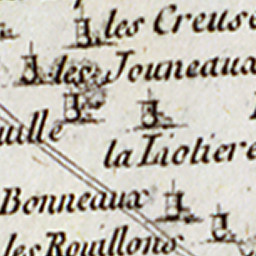 les Creuse
les Jouneaux
uille
la Liotiere
Bonneaux
les Rouillons